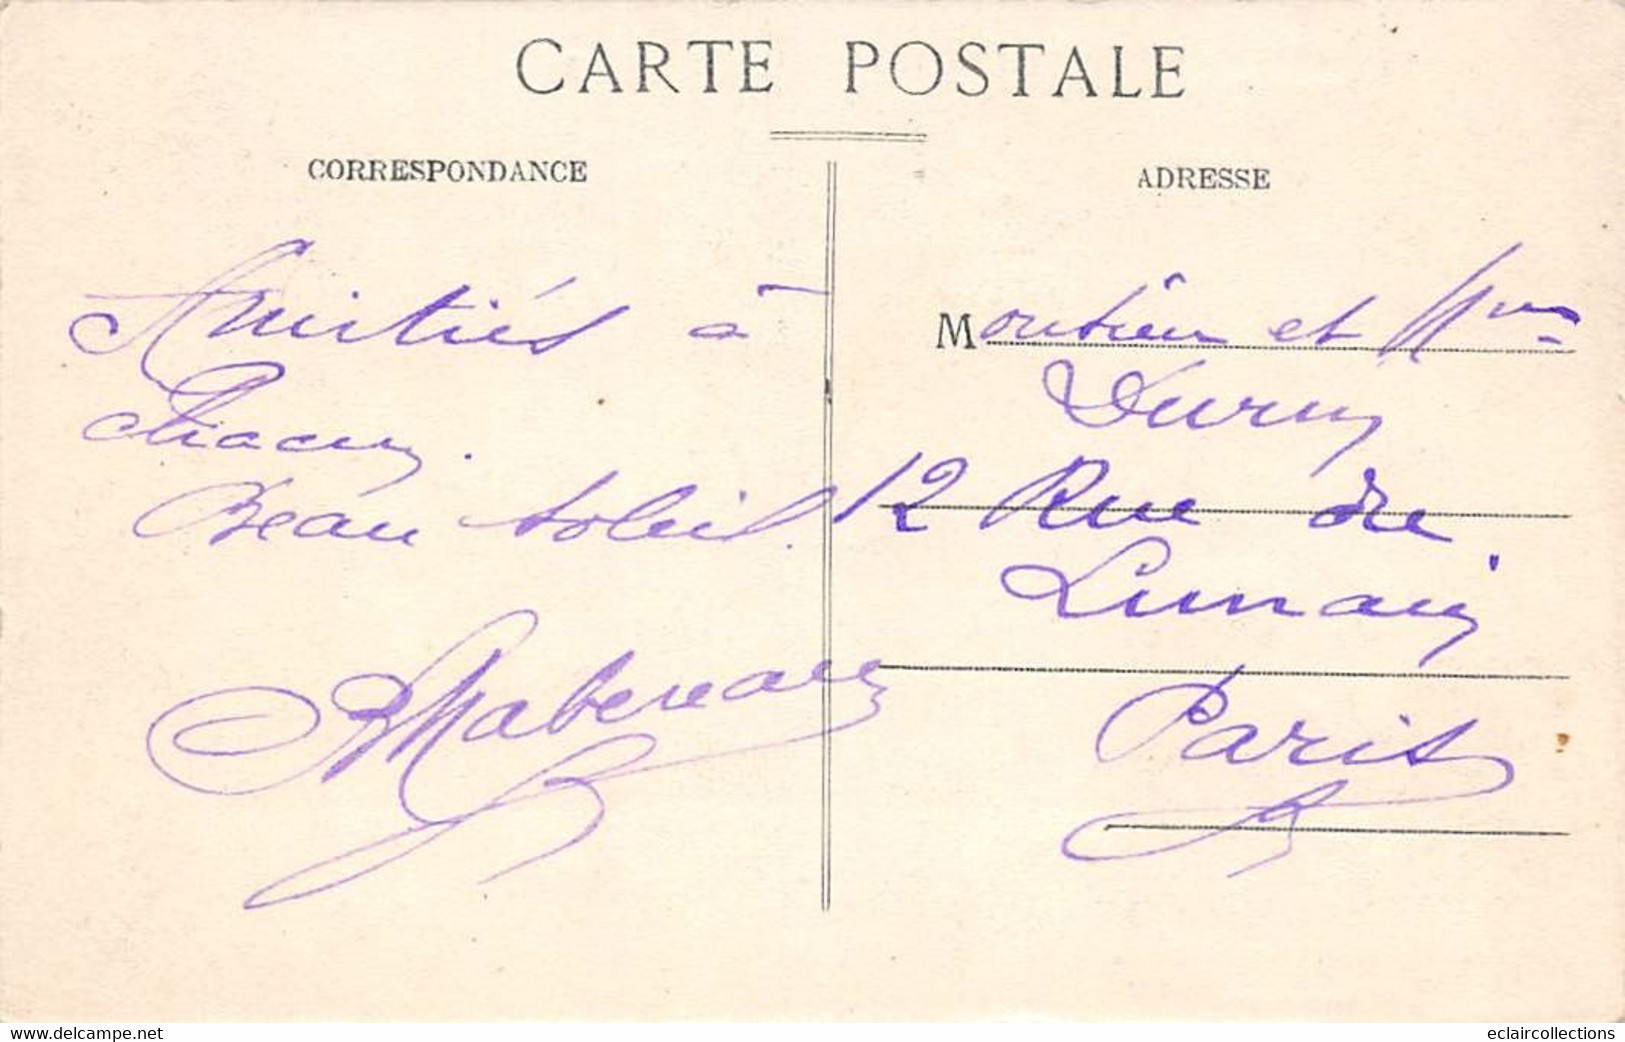 CARTE POSTALE
CORRESPONDANCE
Amitiés à
Chacun.
Beau soleil.
ADRESSE
Monsieur et Mme
Duruy
12 Rue de
Lunain
Paris
www.delcampe.net
eclaircollections